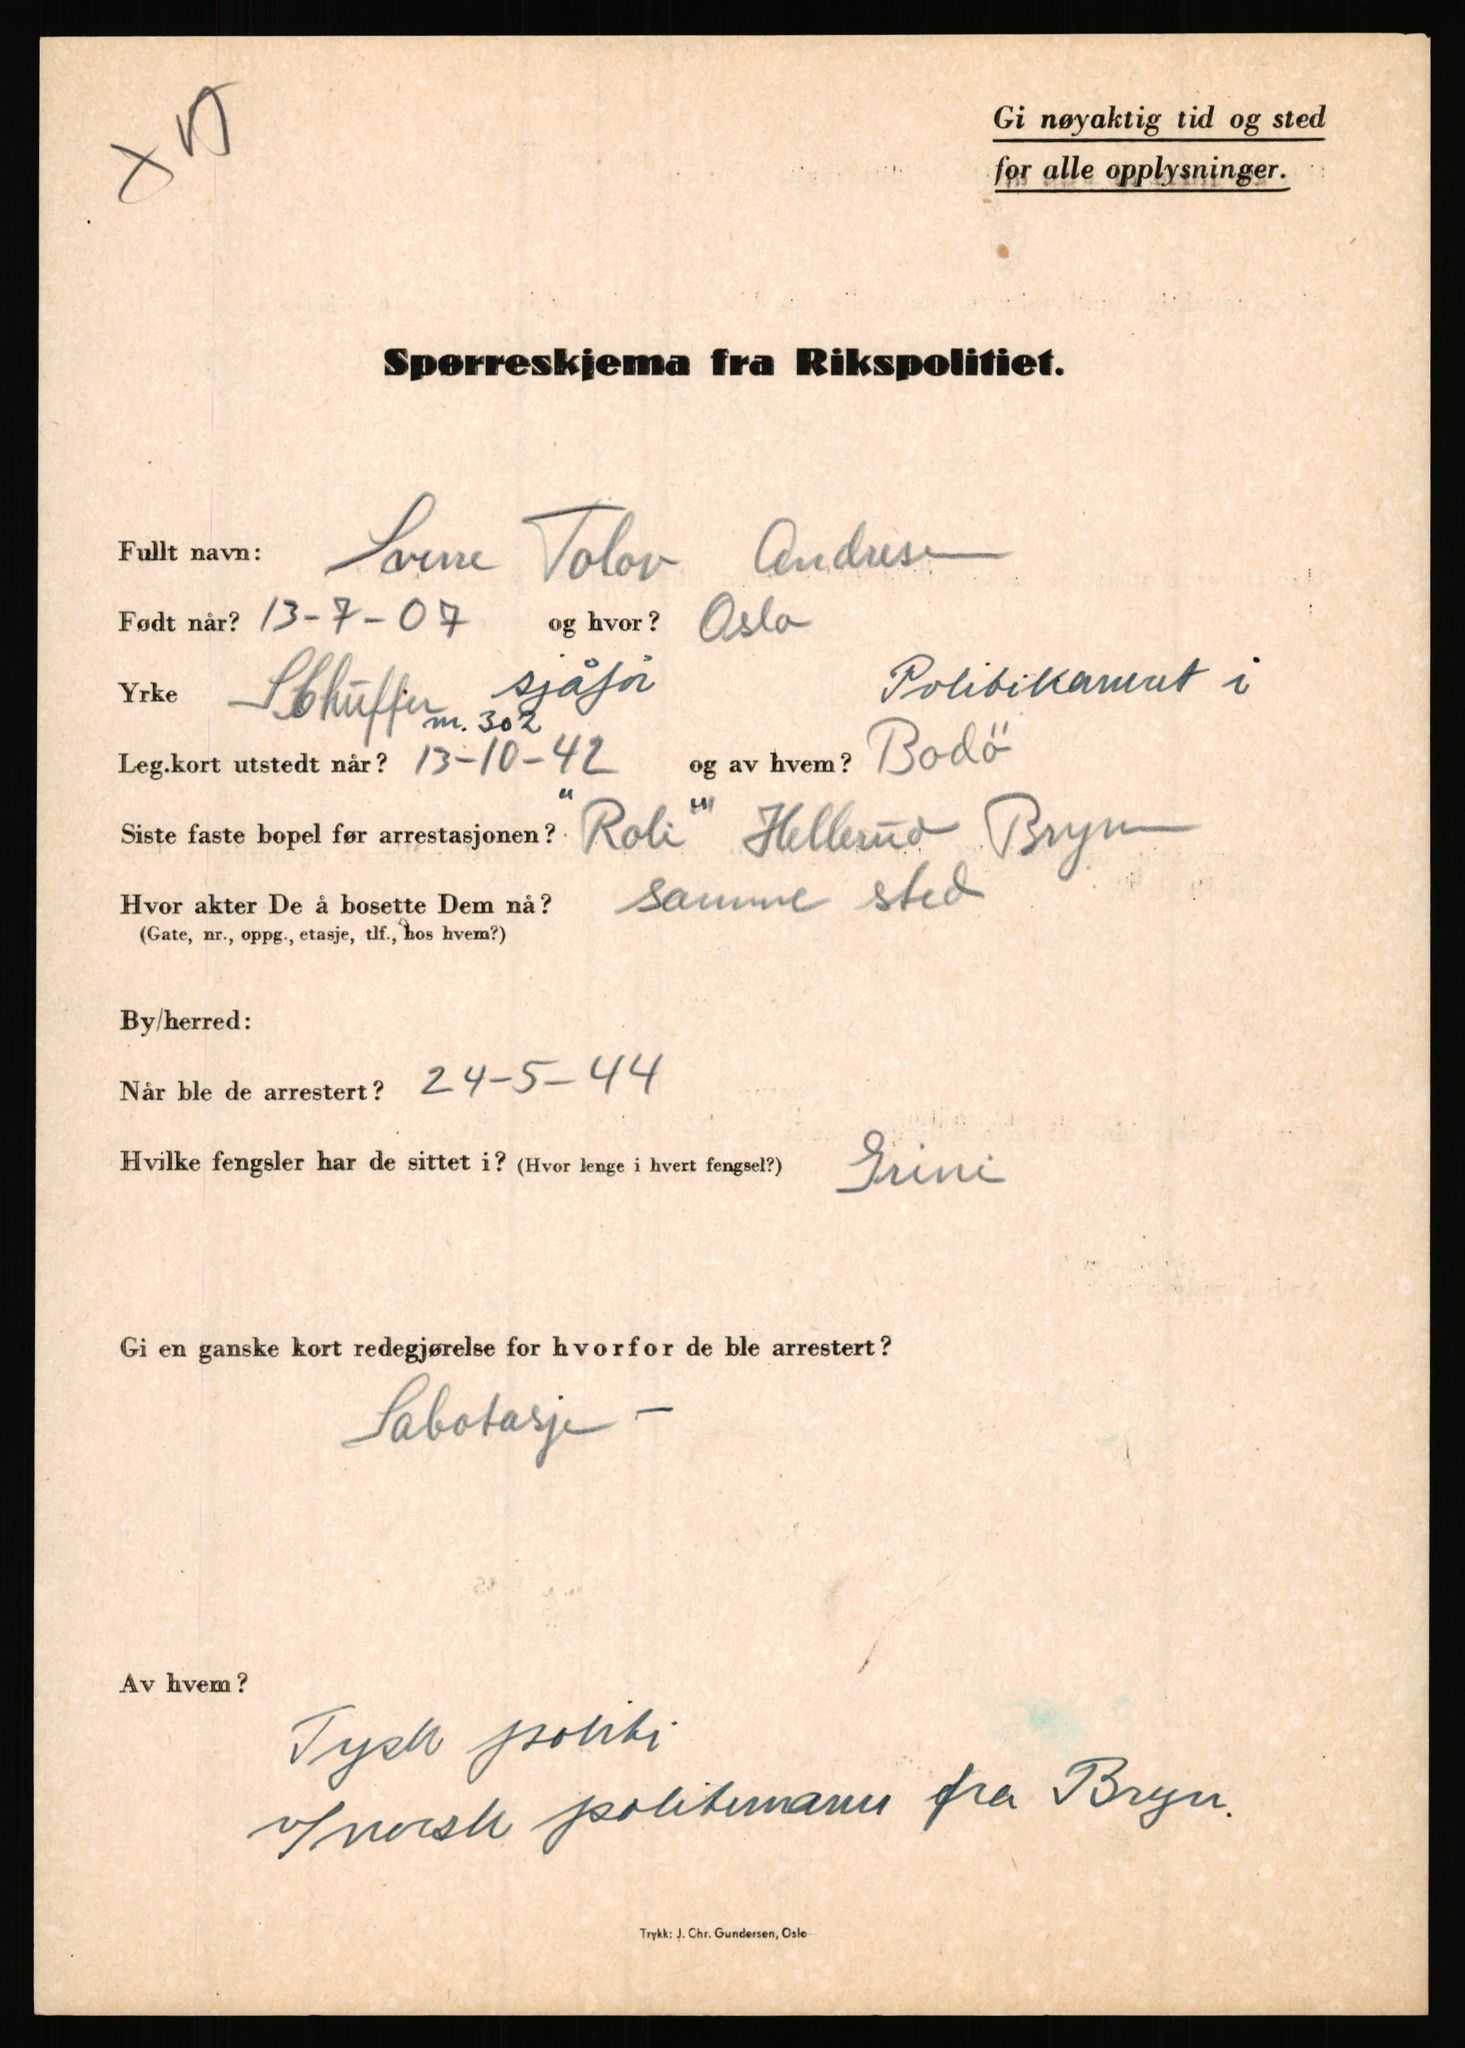 Gi nøyaktig tid og sted
for alle opplysninger.
Spørreskjema fra Rikspolitiet.
Fullt navn: Sverre Tolov Andresen
Født når? 13-7-07 og hvor? Oslo
Yrke sjåfør Politikamret i
nr. 302
Leg.kort utstedt når? 13-10-42 og av hvem? Bodö
Siste faste bopel før arrestasjonen? "Roli" Hellerud Bryn
Hvor akter De å bosette Dem nå? samme sted
(Gate, nr., oppg., etasje, tlf., hos hvem?)
By/herred:
Når ble de arrestert? 24-5-44
Hvilke fengsler har de sittet i? (Hvor lenge i hvert fengsel?) Grini
Gi en ganske kort redegjørelse for hvorfor de ble arrestert?
Sabotasje -
Av hvem?
Tysk politi
v/norsk politimann fra Bryn.
Trykk: J. Chr. Gundersen, Oslo